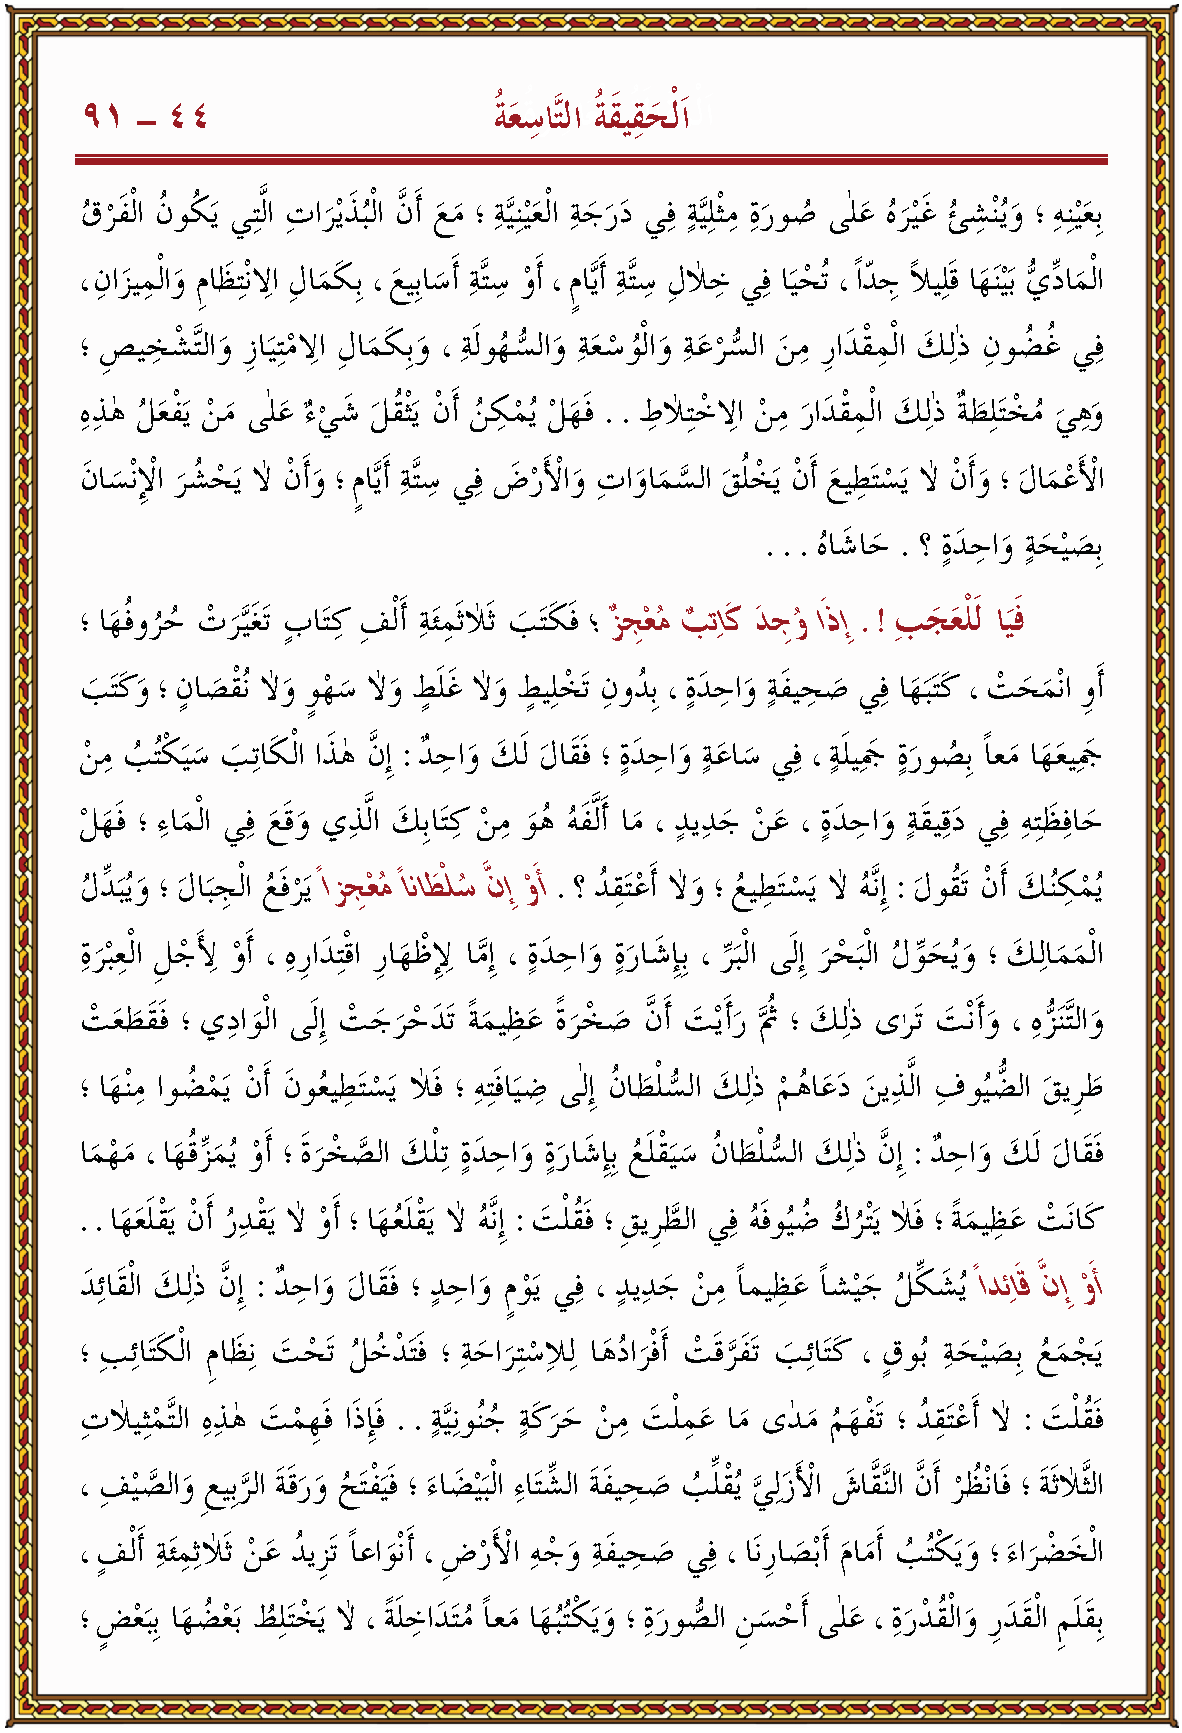 اَلْحَقِيقَةُ التَّاسِعَةُ ٤٤ – ٩١
بِعَيْنِهِ ؛ وَيُنْشِئُ غَيْرَهُ عَلٰى صُورَةِ مِثْلِيَّةٍ فِي دَرَجَةِ الْعَيْنِيَّةِ ؛ مَعَ أَنَّ الْبُذَيْرَاتِ الَّتِي يَكُونُ الْفَرْقُ
الْمَادِّيُّ بَيْنَهَا قَلِيلاً جِدّاً ، تُحْيَا فِي خِلاٰلِ سِتَّةِ أَيَّامٍ ، أَوْ سِتَّةِ أَسَابِيعَ ، بِكَمَالِ الاِنْتِظَامِ وَالْمِيزَانِ ،
فِي غُضُونِ ذٰلِكَ الْمِقْدَارِ مِنَ السُّرْعَةِ وَالْوُسْعَةِ وَالسُّهُولَةِ ، وَبِكَمَالِ الاِمْتِيَازِ وَالتَّشْخِيصِ ؛
وَهِيَ مُخْتَلِطَةٌ ذٰلِكَ الْمِقْدَارَ مِنْ الاِخْتِلاٰطِ . . فَهَلْ يُمْكِنُ أَنْ يَثْقُلَ شَيْءٌ عَلٰى مَنْ يَفْعَلُ هٰذِهِ
الْأَعْمَالَ ؛ وَأَنْ لاٰ يَسْتَطِيعَ أَنْ يَخْلُقَ السَّمَاوَاتِ وَالْأَرْضَ فِي سِتَّةِ أَيَّامٍ ؛ وَأَنْ لاٰ يَحْشُرَ الْإِنْسَانَ
بِصَيْحَةٍ وَاحِدَةٍ ؟ . حَاشَاهُ . . .
فَيَا لَلْعَجَبِ ! . إِذَا وُجِدَ كَاتِبٌ مُعْجِزٌ ؛ فَكَتَبَ ثَلاٰثَمِئَةِ أَلْفِ كِتَابٍ تَغَيَّرَتْ حُرُوفُهَا ؛
أَوِ انْمَحَتْ ، كَتَبَهَا فِي صَحِيفَةٍ وَاحِدَةٍ ، بِدُونِ تَخْلِيطٍ وَلاٰ غَلَطٍ وَلاٰ سَهْوٍ وَلاٰ نُقْصَانٍ ؛ وَكَتَبَ
جَمِيعَهَا مَعاً بِصُورَةٍ جَمِيلَةٍ ، فِي سَاعَةٍ وَاحِدَةٍ ؛ فَقَالَ لَكَ وَاحِدٌ : إِنَّ هٰذَا الْكَاتِبَ سَيَكْتُبُ مِنْ
حَافِظَتِهِ فِي دَقِيقَةٍ وَاحِدَةٍ ، عَنْ جَدِيدٍ ، مَا أَلَّفَهُ هُوَ مِنْ كِتَابِكَ الَّذِي وَقَعَ فِي الْمَاءِ ؛ فَهَلْ
يُمْكِنُكَ أَنْ تَقُولَ : إِنَّهُ لاٰ يَسْتَطِيعُ ؛ وَلاٰ أَعْتَقِدُ ؟ . أَوْ إِنَّ سُلْطَاناً مُعْجِزاً يَرْفَعُ الْجِبَالَ ؛ وَيُبَدِّلُ
الْمَمَالِكَ ؛ وَيُحَوِّلُ الْبَحْرَ إِلَى الْبَرِّ ، بِإِشَارَةٍ وَاحِدَةٍ ، إِمَّا لِإِظْهَارِ اقْتِدَارِهِ ، أَوْ لِأَجْلِ الْعِبْرَةِ
وَالتَّنَزُّهِ ، وَأَنْتَ تَرٰى ذٰلِكَ ؛ ثُمَّ رَأَيْتَ أَنَّ صَخْرَةً عَظِيمَةً تَدَحْرَجَتْ إِلَى الْوَادِي ؛ فَقَطَعَتْ
طَرِيقَ الضُّيُوفِ الَّذِينَ دَعَاهُمْ ذٰلِكَ السُّلْطَانُ إِلٰى ضِيَافَتِهِ ؛ فَلاٰ يَسْتَطِيعُونَ أَنْ يَمْضُوا مِنْهَا ؛
فَقَالَ لَكَ وَاحِدٌ : إِنَّ ذٰلِكَ السُّلْطَانُ سَيَقْلَعُ بِإِشَارَةٍ وَاحِدَةٍ تِلْكَ الصَّخْرَةَ ؛ أَوْ يُمَزِّقُهَا ، مَهْمَا
كَانَتْ عَظِيمَةً ؛ فَلاٰ يَتْرُكُ ضُيُوفَهُ فِي الطَّرِيقِ ؛ فَقُلْتَ : إِنَّهُ لاٰ يَقْلَعُهَا ؛ أَوْ لاٰ يَقْدِرُ أَنْ يَقْلَعَهَا . .
أَوْ إِنَّ قَائِداً يُشَكِّلُ جَيْشاً عَظِيماً مِنْ جَدِيدٍ ، فِي يَوْمٍ وَاحِدٍ ؛ فَقَالَ وَاحِدٌ : إِنَّ ذٰلِكَ الْقَائِدَ
يَجْمَعُ بِصَيْحَةِ بُوقٍ ، كَتَائِبَ تَفَرَّقَتْ أَفْرَادُهَا لِلِاسْتِرَاحَةِ ؛ فَتَدْخُلُ تَحْتَ نِظَامِ الْكَتَائِبِ ؛
فَقُلْتَ : لاٰ أَعْتَقِدُ ؛ تَفْهَمُ مَدٰى مَا عَمِلْتَ مِنْ حَرَكَةٍ جُنُونِيَّةٍ . . فَإِذَا فَهِمْتَ هٰذِهِ التَّمْثِيلاٰتِ
الثَّلاٰثَةَ ؛ فَانْظُرْ أَنَّ النَّقَّاشَ الْأَزَلِيَّ يُقَلِّبُ صَحِيفَةَ الشِّتَاءِ الْبَيْضَاءَ ؛ فَيَفْتَحُ وَرَقَةَ الرَّبِيعِ وَالصَّيْفِ ،
الْخَضْرَاءَ ؛ وَيَكْتُبُ أَمَامَ أَبْصَارِنَا ، فِي صَحِيفَةِ وَجْهِ الْأَرْضِ ، أَنْوَاعاً تَزِيدُ عَنْ ثَلاٰثِمِئَةِ أَلْفٍ ،
بِقَلَمِ الْقَدَرِ وَالْقُدْرَةِ ، عَلٰى أَحْسَنِ الصُّورَةِ ؛ وَيَكْتُبُهَا مَعاً مُتَدَاخِلَةً ، لاٰ يَخْتَلِطُ بَعْضُهَا بِبَعْضٍ ؛